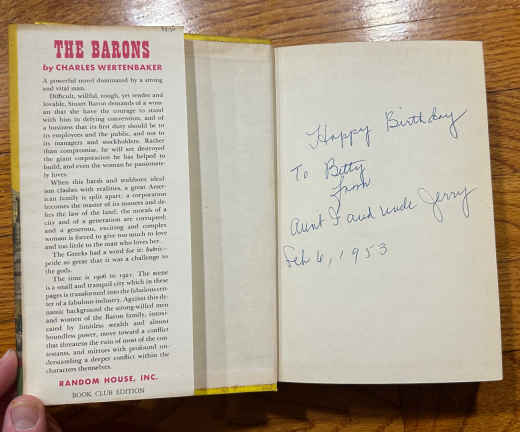 THE BARONS
by CHARLES WERTENBAKER
A powerful novel dominated by a strong
and vital man.
Difficult, willful, tough, yet tender and
lovable, Stuart Baron demands of a wom-
an that she have the courage to stand
with him in defying convention, and of
a business that its first duty should be to
its employees and the public, and not to
its managers and stockholders. Rather
than compromise, he will see destroyed
the giant corporation he has helped to
build, and even the woman he passionate-
ly loves.
When this harsh and stubborn ideal-
ism clashes with realities, a great Amer-
ican family is split apart; a corporation
becomes the master of its masters and de-
fies the law of the land; the morals of a
city and of a generation are corrupted;
and a generous, exciting and complex
woman is forced to give too much to love
and too little to the man who loves her.
The Greeks had a word for it: hubris—
pride so great that it was a challenge to
the gods.
The time is 1906 to 1921. The scene
is a small and tranquil city which in these
pages is transformed into the fabulous cen-
ter of a fabulous industry. Against this dy-
namic background the strong-willed men
and women of the Baron family, intoxi-
cated by limitless wealth and almost
boundless power, move toward a conflict
that threatens the ruin of most of the con-
testants, and mirrors with profound un-
derstanding a deeper conflict within the
characters themselves.
RANDOM HOUSE, INC.
BOOK CLUB EDITION
Happy Birthday
To Betty
from
Aunt F and uncle Jerry
Feb 6, 1953